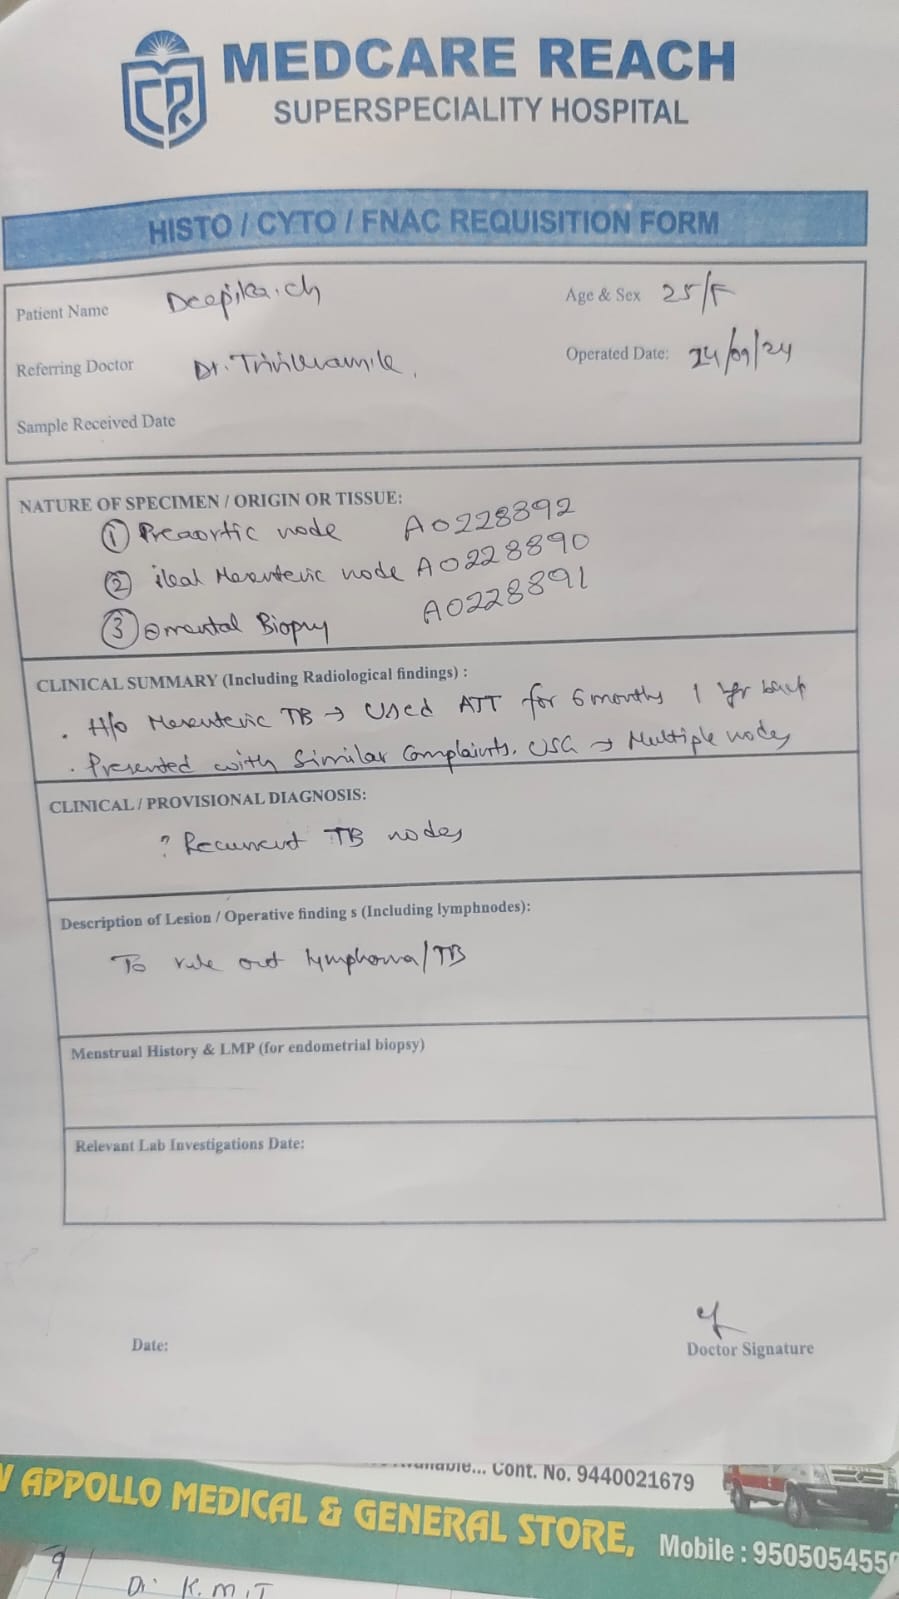 MEDCARE REACH
SUPERSPECIALITY HOSPITAL
HISTO / CYTO / FNAC REQUISITION FORM
Patient Name Deepika.ch Age & Sex 25/F
Referring Doctor Dr. Operated Date: 24/09/24
Sample Received Date
NATURE OF SPECIMEN / ORIGIN OR TISSUE:
① Preaortic node A0228892
② ileal Mesenteric node A0228890
③ omental Biopsy A0228891
CLINICAL SUMMARY (Including Radiological findings) :
. H/o Mesenteric TB → Used ATT for 6 months 1 yr back
. Presented with Similar Complaints. USG → Multiple nodes
CLINICAL / PROVISIONAL DIAGNOSIS:
? Recurrent TB nodes
Description of Lesion / Operative finding s (Including lymphnodes):
To rule out lymphoma/TB
Menstrual History & LMP (for endometrial biopsy)
Relevant Lab Investigations Date:
Date:
Doctor Signature
... Cont. No. 9440021679
APPOLLO MEDICAL & GENERAL STORE, Mobile : 950505455
9
Dr. K.M.T